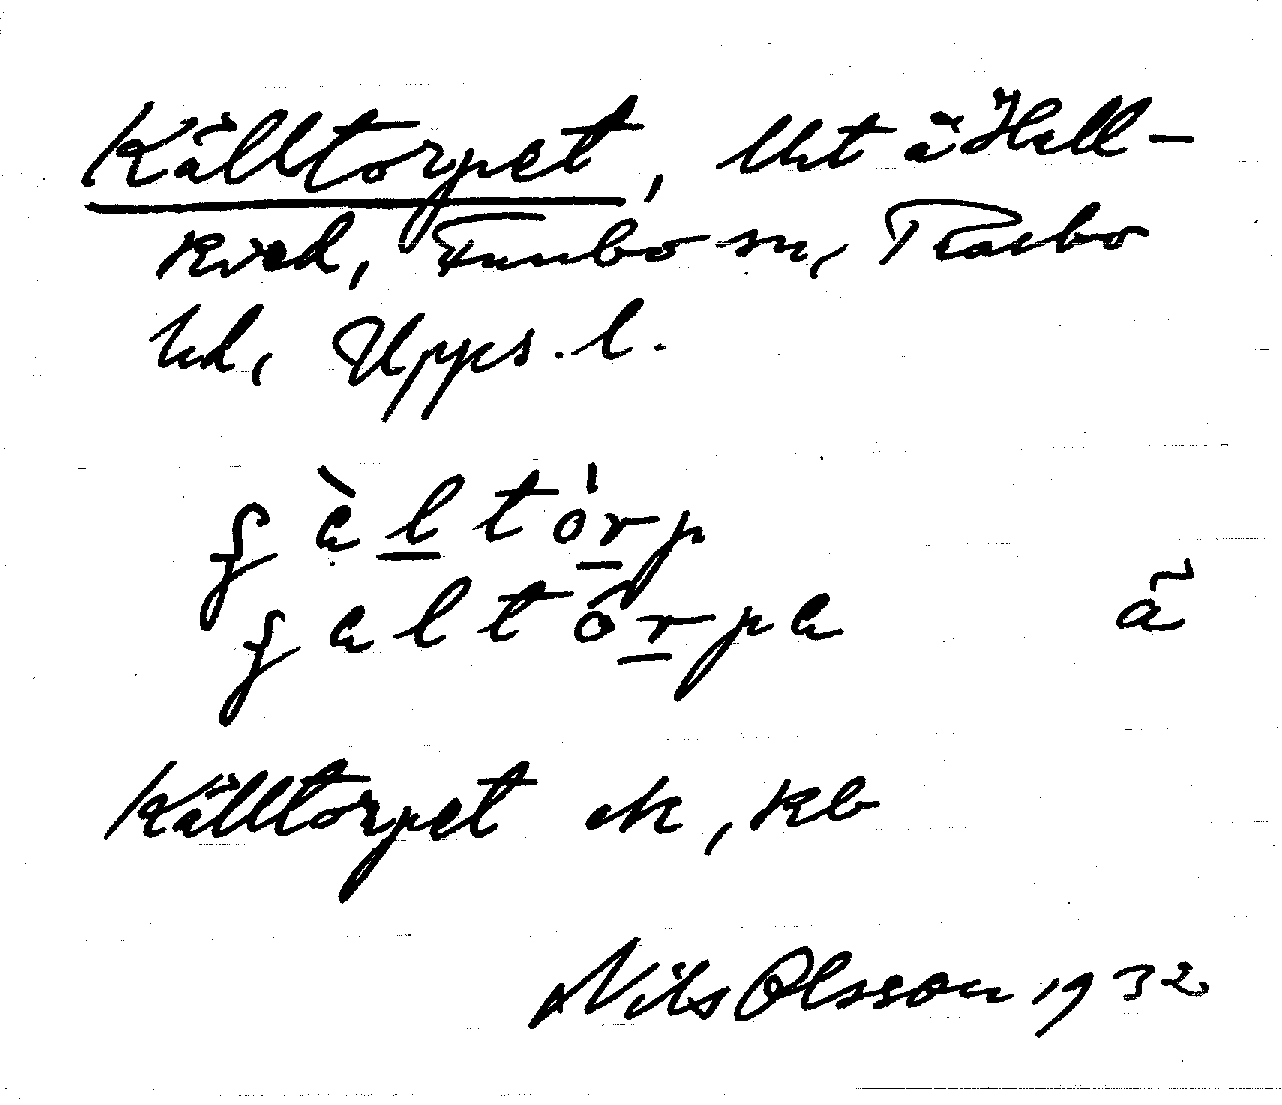 Källtorpet, Utä Häll-
kved, Funbo sn, Rasbo
hd, Upps. l.
ʃàltórp
ʃaltórpa ã
Källtorpet ek, kb
Nils Olsson 1932